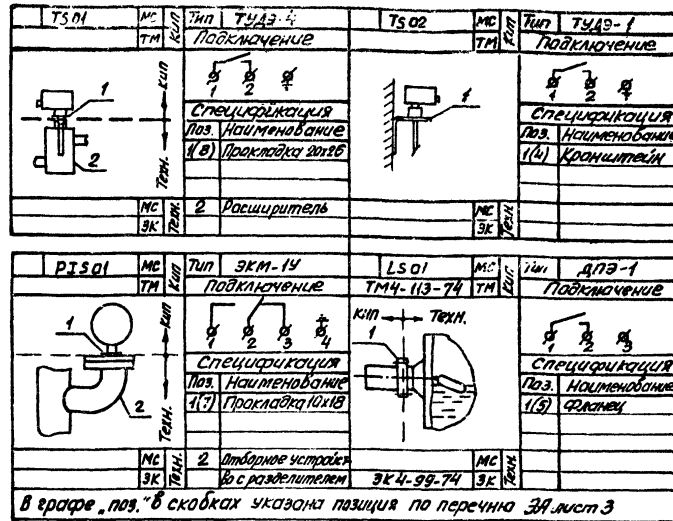 TS01 МС КИП Тип ТУДЭ-4
ТМ Подключение
1 КИП 1 2
Спецификация
Поз. Наименование
1(8) Прокладка 20х26
2 Техн.
МС Техн. 2 Расширитель
ЭК
TS02 МС КИП Тип ТУДЭ-1
ТМ Подключение
1 1 2
Спецификация
Поз. Наименование
1(4) Кронштейн
МС Техн.
ЭК
PIS01 МС КИП Тип ЭКМ-1У
ТМ Подключение
1 КИП 1 2 3 4
Спецификация
Поз. Наименование
1(7) Прокладка 10х18
2 Техн.
МС Техн. 2 Отборное устройст
ЭК во с разделителем
LS01 МС КИП Тип ДПЭ-1
ТМ4-113-74 ТМ Подключение
КИП Техн.
1 1 2 3
Спецификация
Поз. Наименование
1(5) Фланец
МС Техн.
ЭК4-99-74 ЭК
В графе „поз." в скобках указана позиция по перечню ЭА лист 3